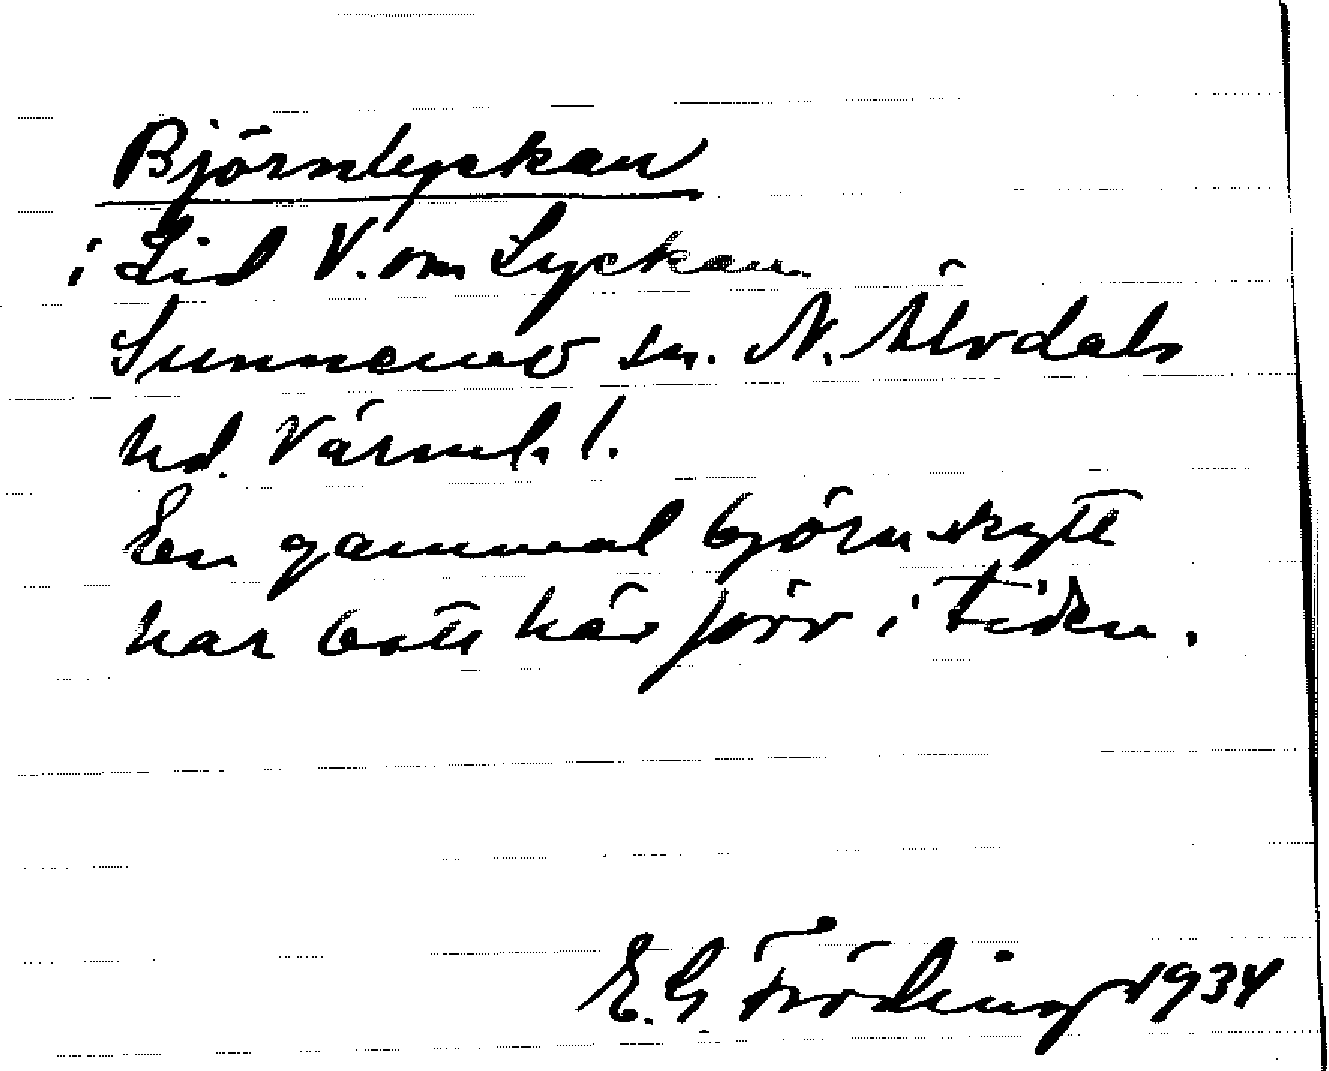 Björnlyckan
i Lid V. om Lyckan
Sunnemo sn. N. Älvdals
hd. Värml. l.
En gammal björnskytt
har bott här förr i tiden.
E. G Fröding 1934